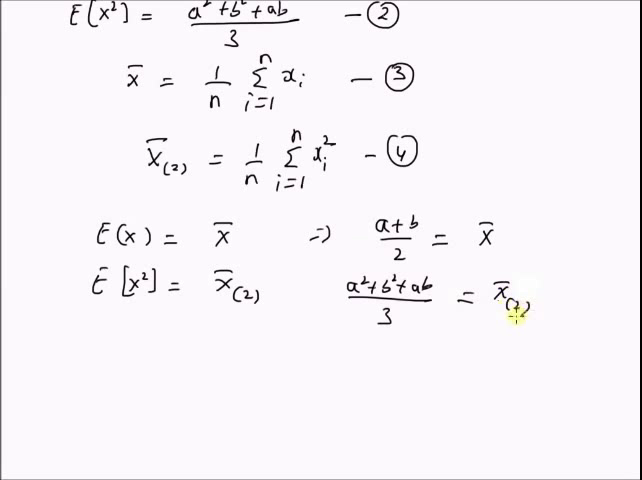 E[x²] = (a² + b² + ab)/3 — ②
x̄ = 1/n Σ_{i=1}^{n} x_i — ③
x̄_(2) = 1/n Σ_{i=1}^{n} x_i² — ④
E(x) = x̄ ⇒ (a+b)/2 = x̄
E[x²] = x̄_(2) (a²+b²+ab)/3 = x̄_(2)